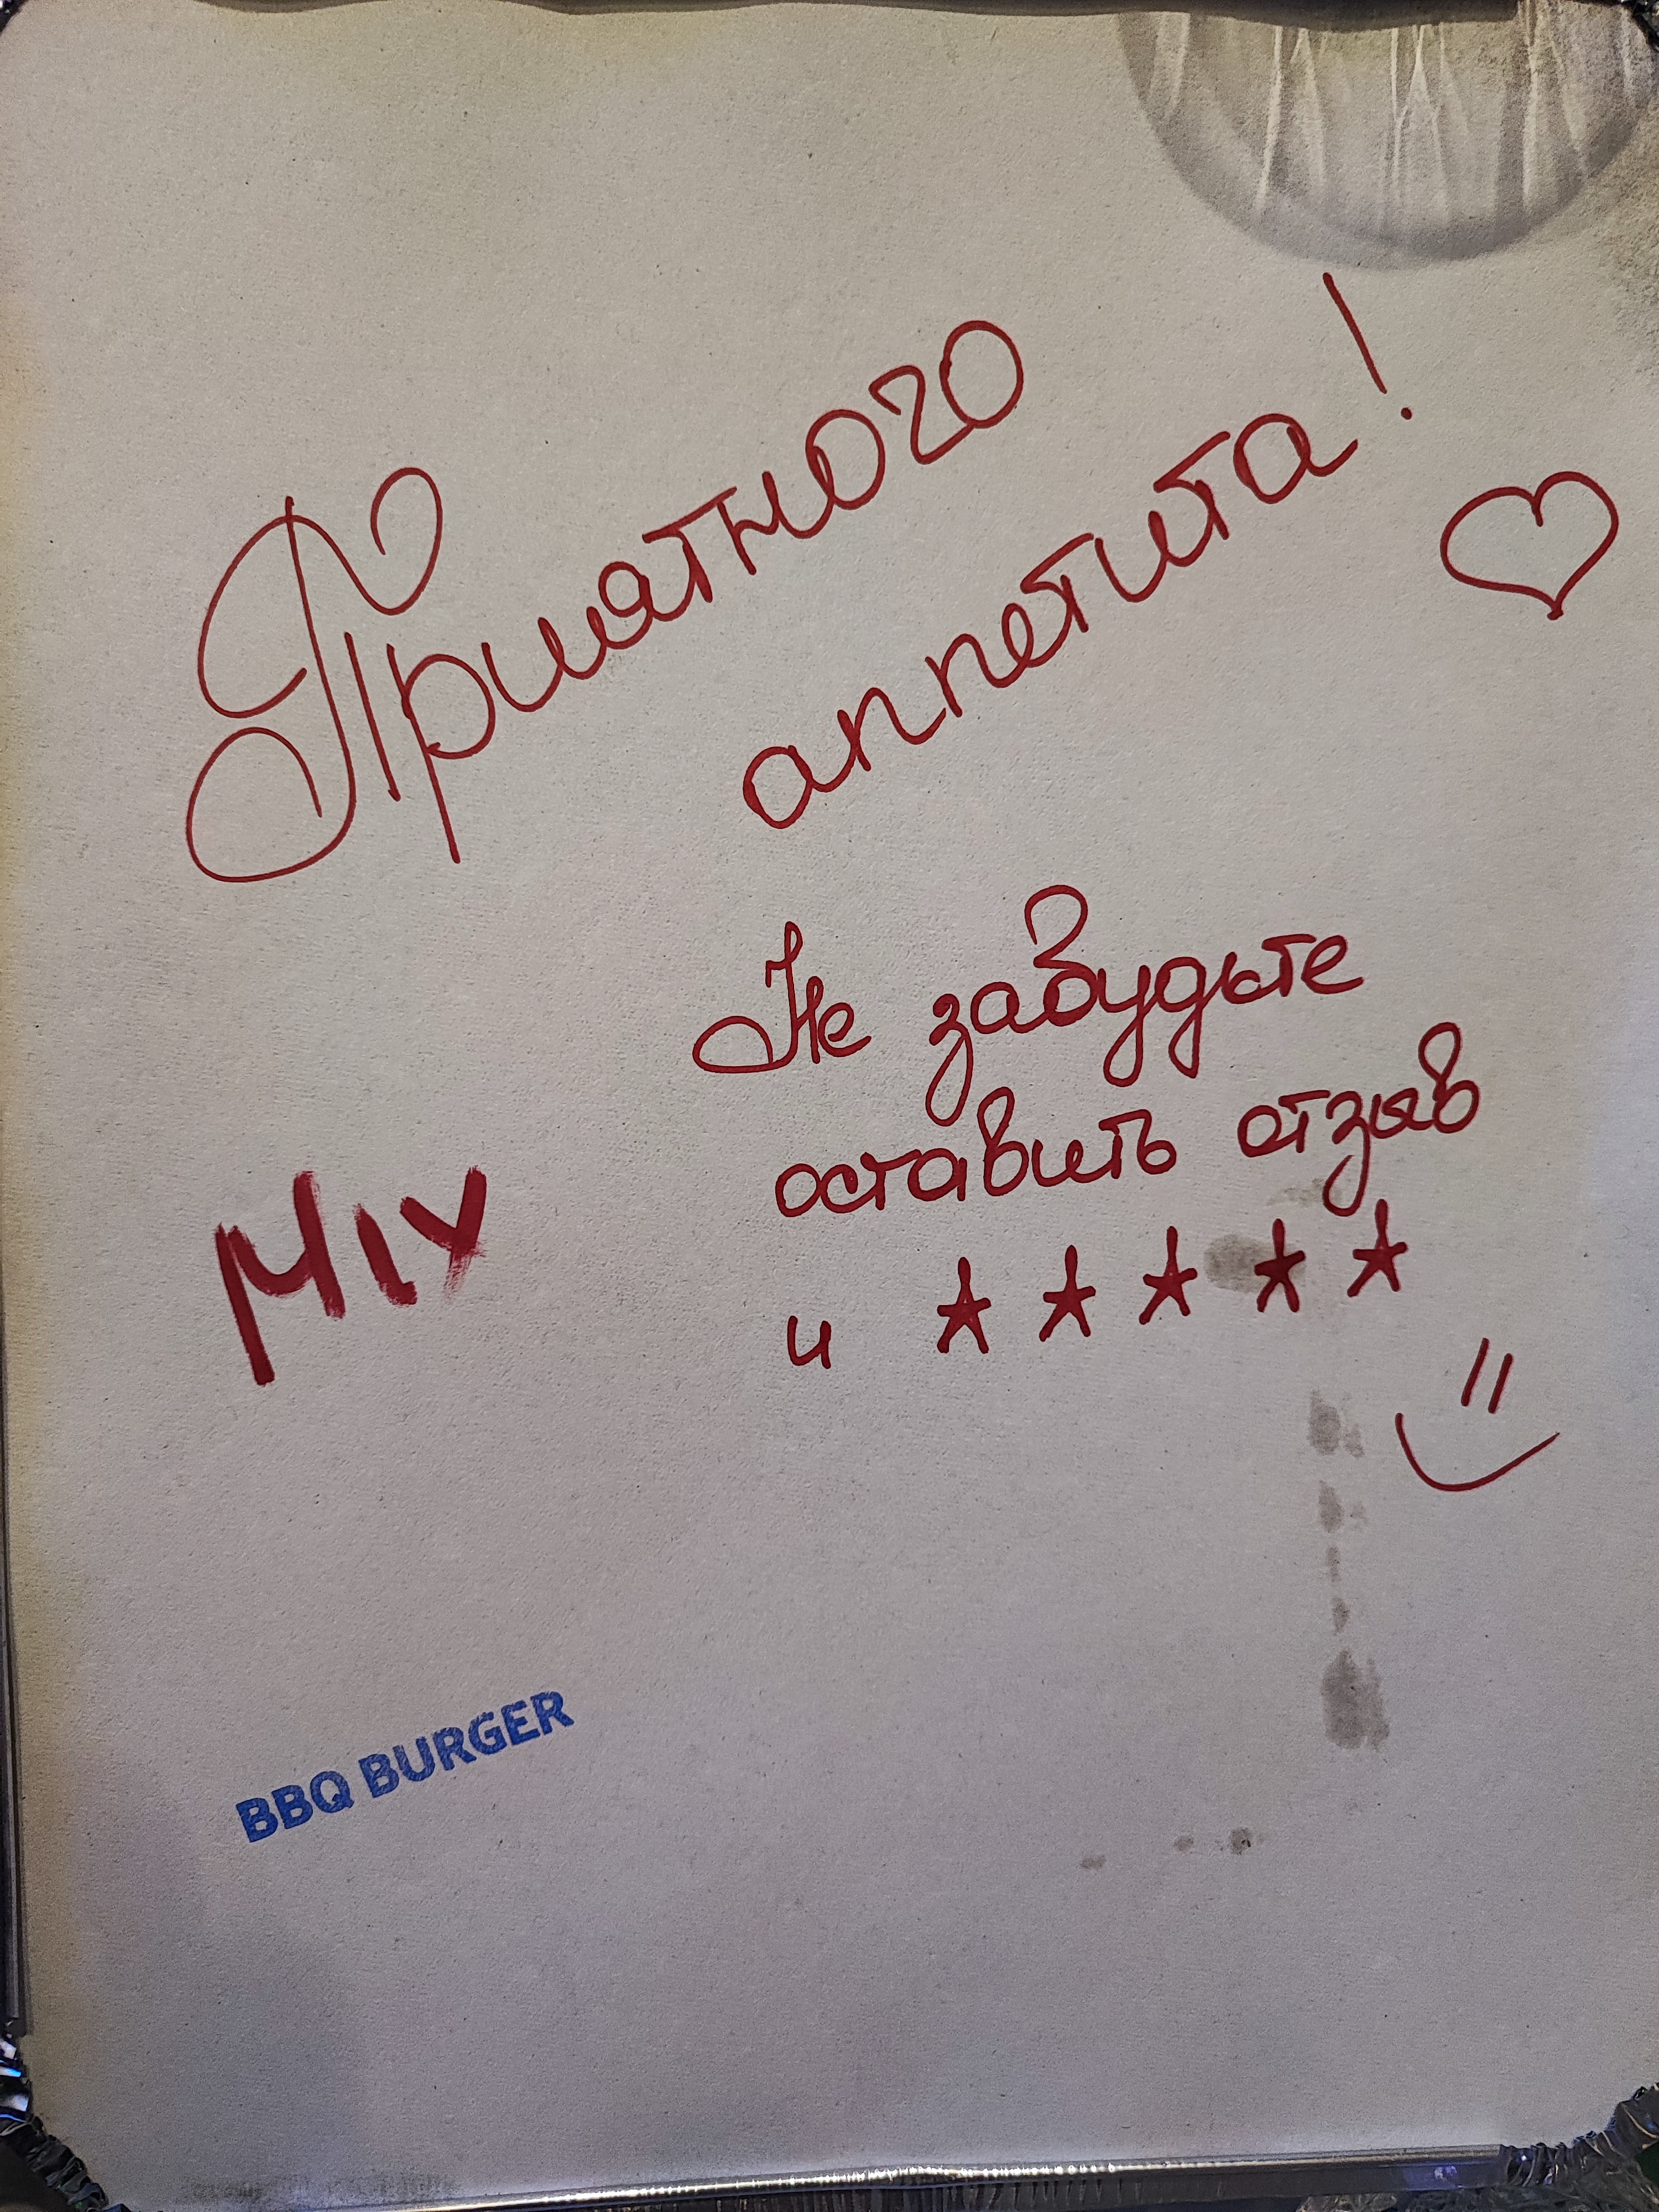 Приятного
аппетита!
Не забудьте
оставить отзыв
и ★ ★ ★ ★ ★
MIX
BBQ BURGER